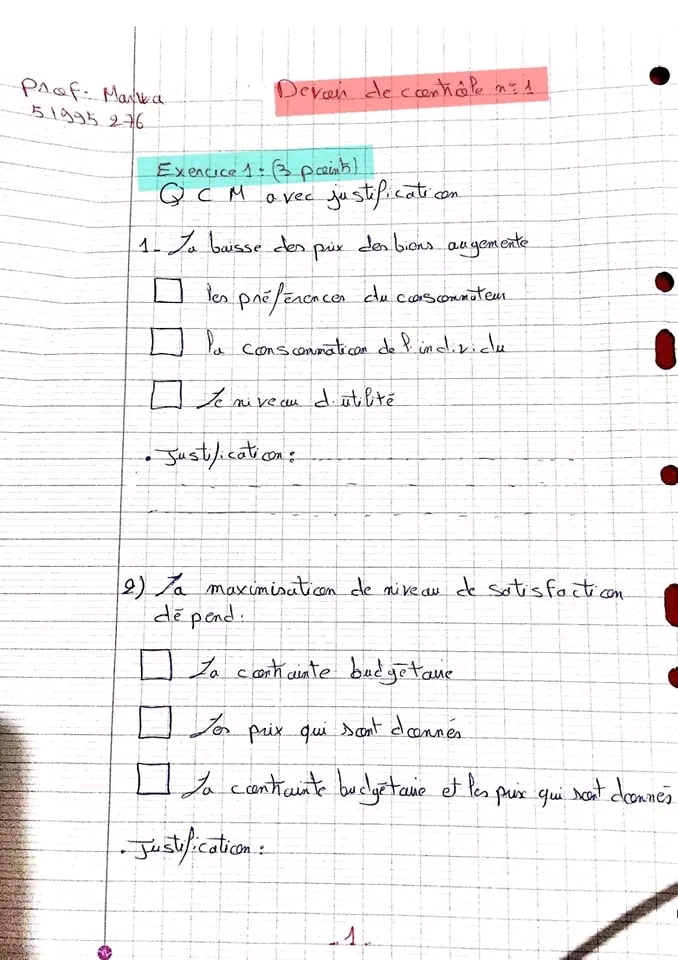 Prof: Marwa
51995276
Devoir de contrôle n°1
Exercice 1: (3 points)
QCM avec justification
1- La baisse des prix des biens augemente
les préférences du consommateur
la consommation de l'individu
le niveau d'utilité
. Justification:
2) La maximisation de niveau de satisfaction
dépend:
La contrainte budgétaire
Les prix qui sont donnés
La contrainte budgétaire et les prix qui sont donnés
. Justification:
-1-